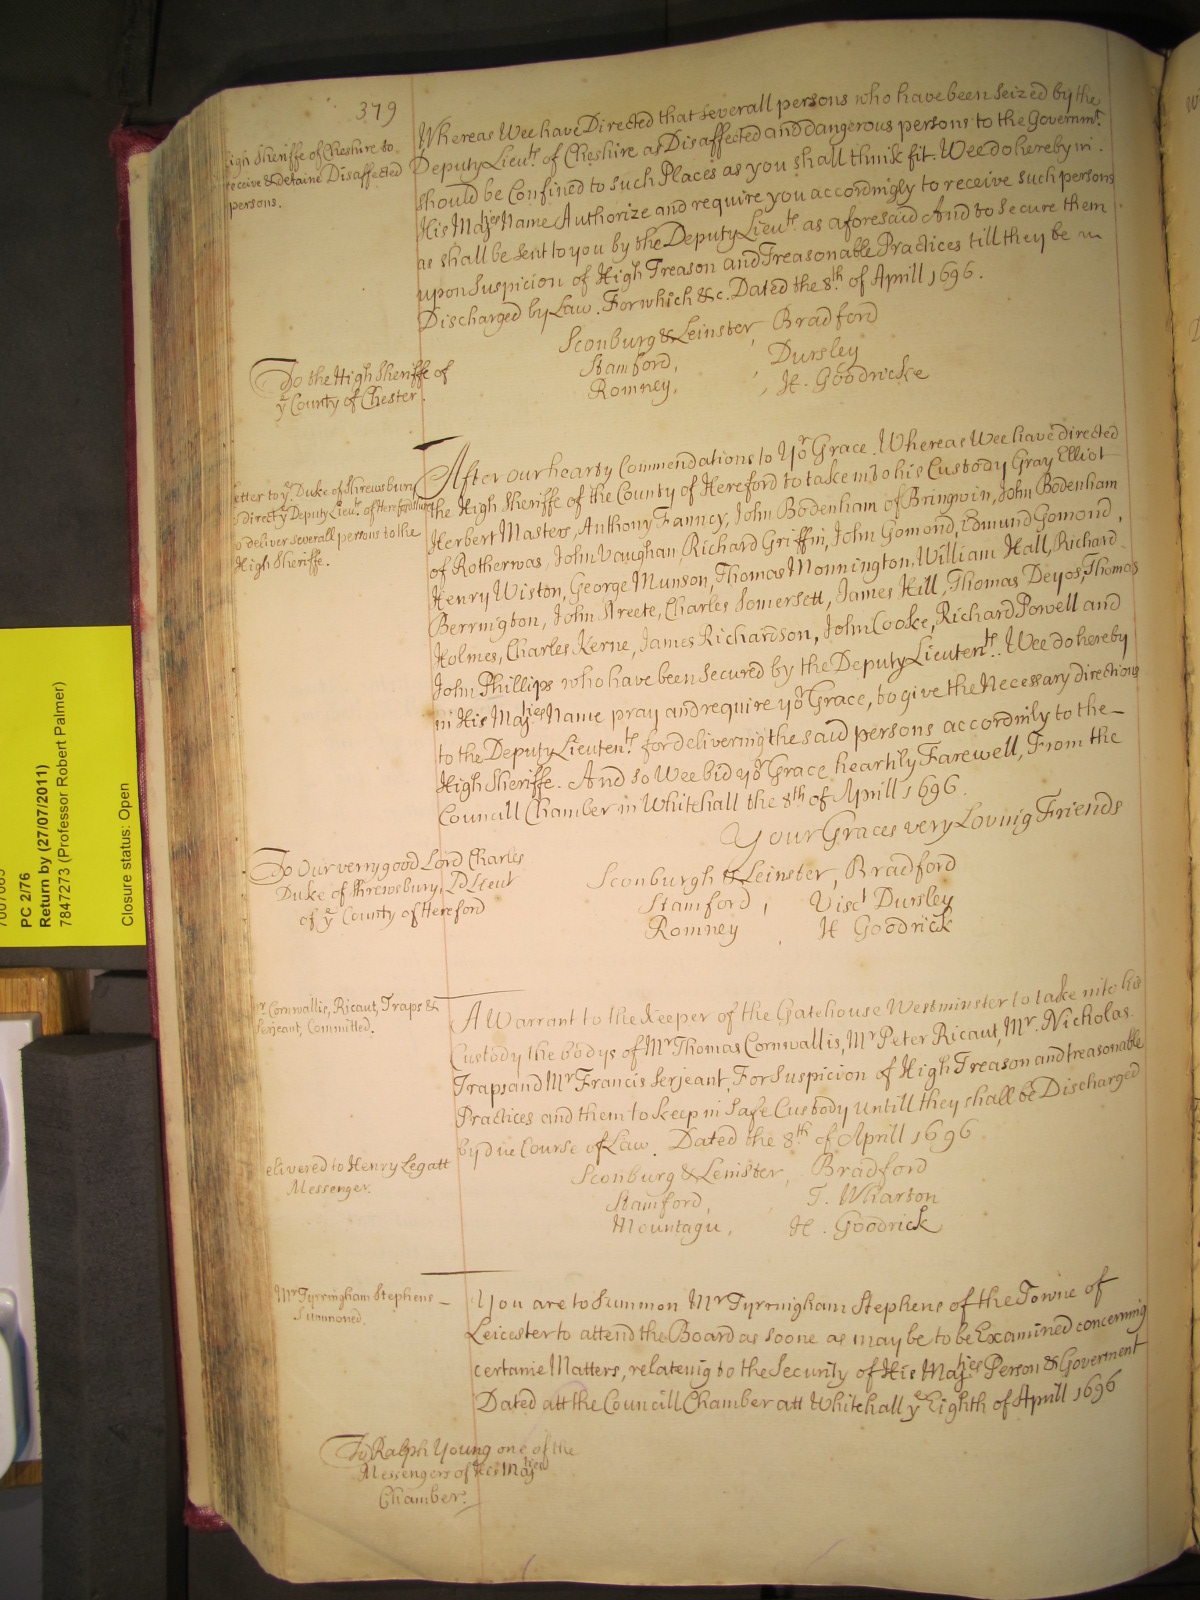 379
igh Sheriffe of Cheshire to
receive & detaine Disaffected
persons.
Whereas Wee have Directed that severall persons who have been seized by the
Deputy Lieuts. of Cheshire as Disaffected and dangerous persons to the Governmt.
should be Confined to such Places as you shall think fit. Wee do hereby in
His Majties Name Authorize and require you accordingly to receive such persons
as shall be sent to you by the Deputy Lieuts. as aforesaid And to secure them
upon Suspicion of High Treason and Treasonable Practices till they be
Discharged by Law. For which &c. Dated the 8th. of Aprill 1696.
Sconburg & Leinster, Bradford
Stamford, Dursley
Romney, H. Goodricke
To the High Sheriffe of
ye County of Chester.
etter to ye. Duke of Shrewsbury
direct ye Deputy Lieuts. of Herefordshire
o deliver severall persons to the
High Sheriffe.
After our hearty Commendations to Yor Grace. Whereas Wee have directed
the High Sheriffe of the County of Hereford to take into his Custody Gray Elliot
Herbert Masters, Anthony Fanncy, John Bodenham of Bringwin, John Bodenham
of Rotherwas, John Vaughan, Richard Griffin, John Gomond, Edmund Gomond,
Henry Wiston, George Munson, Thomas Monnington, William Hall, Richard
Berrington, John Streete, Charles Somersett, James Hill, Thomas Deyos, Thomas
Holmes, Charles Kerne, James Richardson, John Cooke, Richard Powell and
John Phillips who have been secured by the Deputy Lieutents. Wee do hereby
in His Majties Name pray and require yor Grace, to give the Necessary directions
to the Deputy Lieutents. for delivering the said persons accordinly to the
High Sheriffe. And so Wee bid yor Grace heartily Farewell, From the
Councill Chamber in Whitehall the 8th of Aprill 1696.
Your Graces very Loving Friends
To Our verry good Lord Charles
Duke of Shrewsbury, Ld Lieut
of ye County of Hereford
Sconburgh & Leinster, Bradford
Stamford, Visct Dursley
Romney H Goodrick
r. Cornwallis, Ricaut, Traps &
Serjeant, Committed.
A Warrant to the Keeper of the Gatehouse Westminster to take into his
Custody the bodys of Mr Thomas Cornwallis, Mr Peter Ricaut, Mr. Nicholas
Traps and Mr Francis Serjeant, For Suspicion of High Treason and treasonable
Practices and them to keep in Safe Custody untill they shall be Discharged
by due Course of Law. Dated the 8th of Aprill 1696
elivered to Henry Legatt
Messenger.
Sconburg & Leinster, Bradford
Stamford, T. Wharton
Mountagu, H. Goodrick
Mr Tyrringham Stephens
Summoned.
You are to Summon Mr Tyrringham Stephens of the Towne of
Leicester to attend the Board as soone as may be to be Examined concerning
certaine Matters, relateing to the Security of His Majties Person & Goverment
Dated att the Councill Chamber att Whitehall ye Eighth of Aprill 1696
To Ralph Young one of the
Messengers of His Majties
Chamber.
PC 2/76
Return by (27/07/2011)
7847273 (Professor Robert Palmer)
Closure status: Open